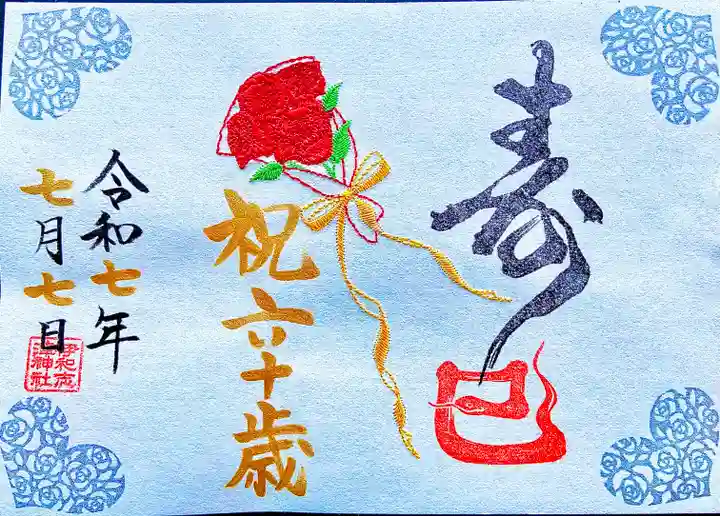 寿
巳
祝六十歳
令和七年
七月七日
伊和志津神社